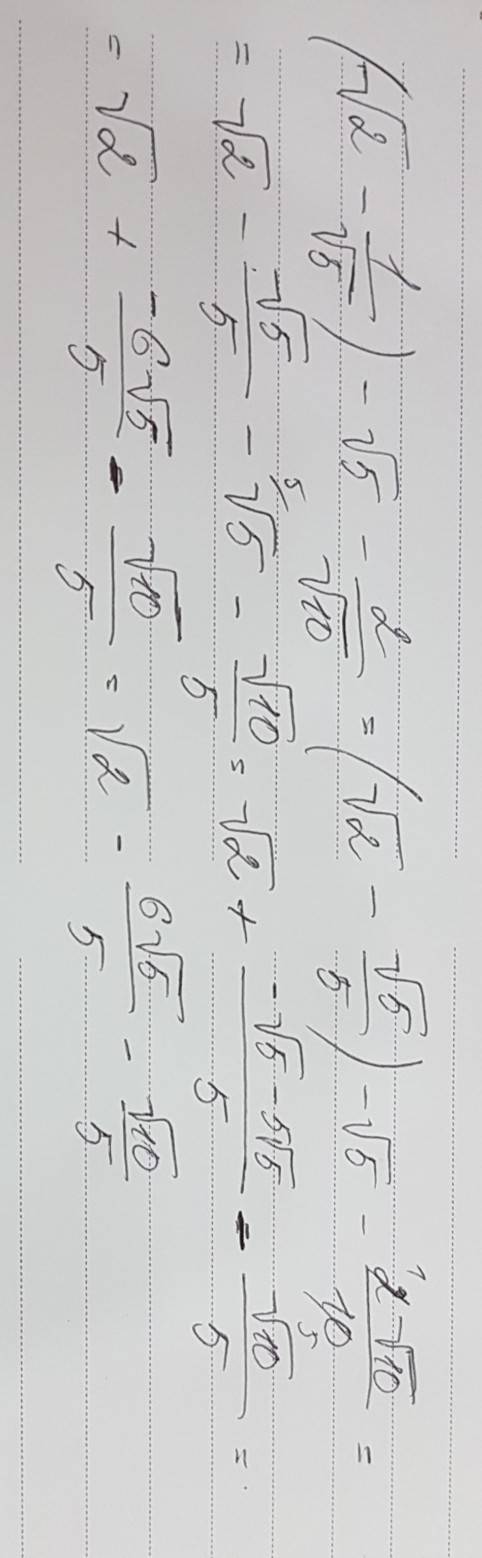 (√2 - 1/√5) - √5 - 2/√10 = (√2 - √5/5) - √5 - 2√10/10 =
= √2 - √5/5 - √5 - √10/5 = √2 + (-√5 - 5√5)/5 - √10/5 =
= √2 + (-6√5)/5 - √10/5 = √2 - 6√5/5 - √10/5